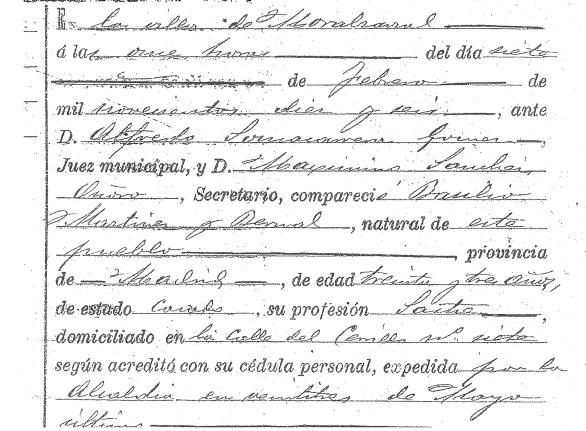 En la villa de Moralzarzal
á las once horas del día siete
de Febrero de
mil novecientos diez y seis, ante
D. Alfredo
Juez municipal, y D. Maximino Sanchez
, Secretario, compareció Basilio
Martinez y Bernal, natural de este
pueblo, provincia
de Madrid, de edad treinta y tres años,
de estado casado, su profesión Sastre,
domiciliado en la Calle del nº siete
según acreditó con su cédula personal, expedida por la
Alcaldia en veintitres de Mayo
último